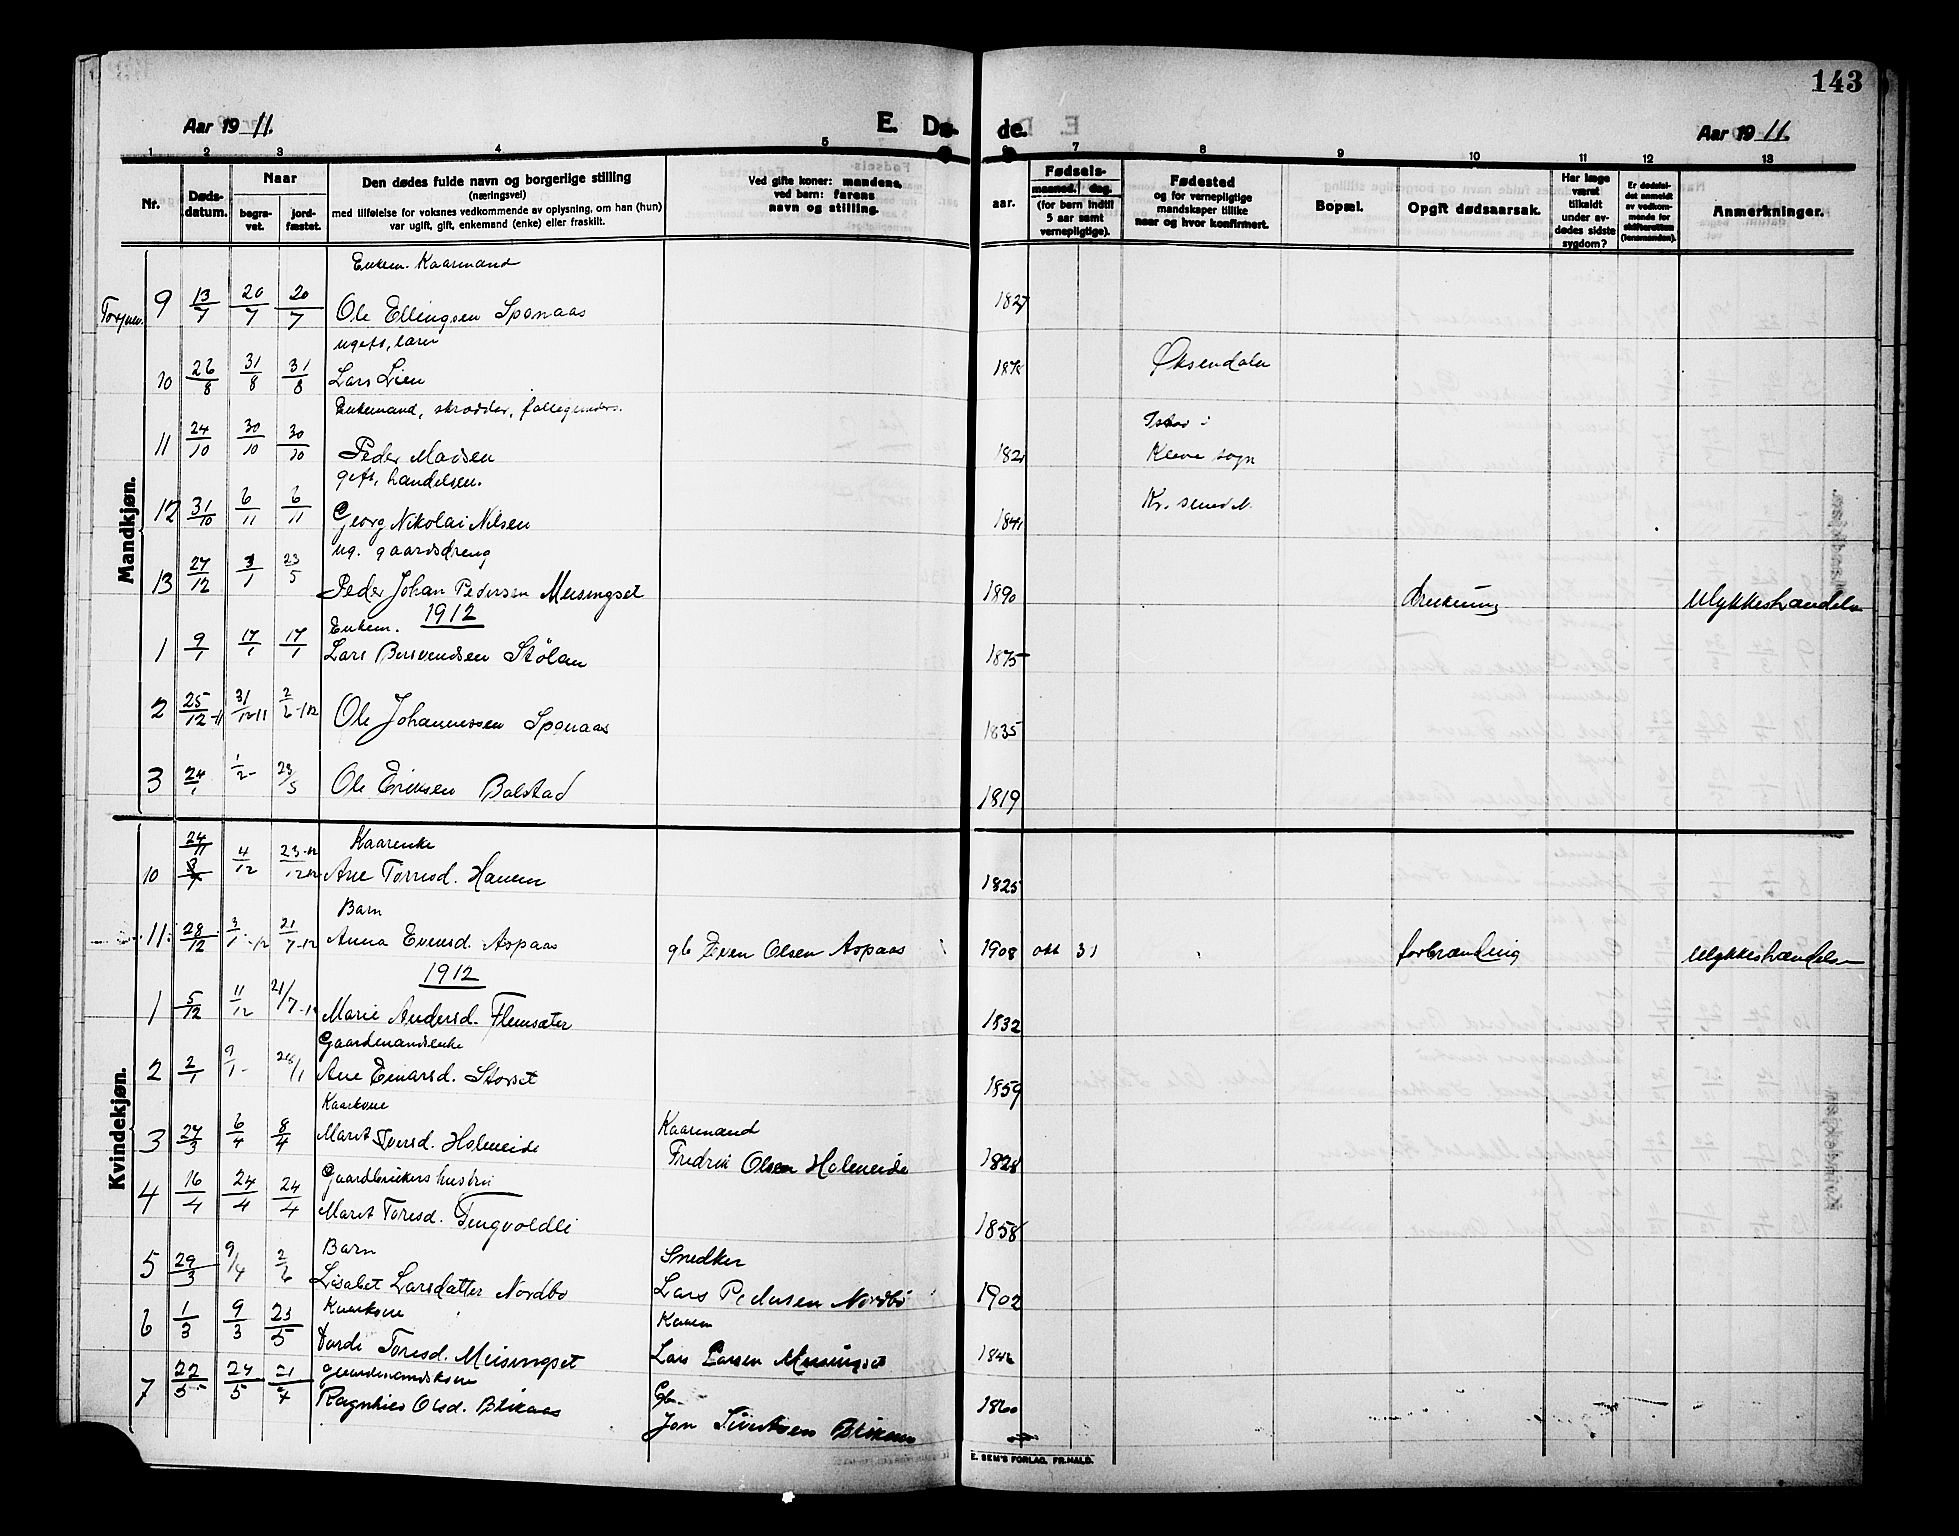 143
Aar 19 11.
E. Dø-
de.
Aar 19 11.
1 2 3 4 5 6 7 8 9 10 11 12 13
Nr.
Døds-
datum.
Naar
begra-
vet.
jord-
fæstet.
Den dødes fulde navn og borgerlige stilling
(næringsvei)
med tilføielse for voksnes vedkommende av oplysning, om han (hun)
var ugift, gift, enkemand (enke) eller fraskilt.
Ved gifte koner: mandens,
ved barn: farens
navn og stilling.
aar.
Fødsels-
maaned. dag.
(for barn indtil
5 aar samt
vernepligtige).
Fødested
og for vernepligtige
mandskaper tillike
naar og hvor konfirmert.
Bopæl.
Opgit dødsaarsak.
Har læge
været
tilkaldt
under av-
dødes sidste
sygdom?
Er dødsfal-
det anmeldt
av vedkom-
mende for
skifteretten
(lensmanden).
Anmerkninger.
Mandkjøn.
Enkem. Kaarmand
9 13/7 20/7 20/7 Ole Ellingsen Sponaas 1827
10 26/8 31/8 31/8 Lars Lien Øksendalen
Enkemand, skrædder,
11 24/10 30/10 30/10 Peder Madsen Kleve sogn
gift, handelsm.
12 31/10 6/11 6/11 Georg Nikolai Nilsen 1841
ug. gaardsdreng
13 27/12 3/1 23/5 Peder Johan Pedersen Meisingset 1890 drukning Ulykkeshændelse
1912
Enkem.
1 9/1 17/1 17/1 Lars Stølan 1875
2 25/12-11 31/12-11 2/6-12 Ole Johannessen Sponaas 1835
3 24/1 1/2 23/5 Ole Eriksen Bolstad 1819
Kvindekjøn.
Kaarenke
10 24/11 4/12 Ane Torresd. Hanem 1825
Barn
11 28/12 3/1-12 21/7-12 Anna Evensd. Aspaas gb Even Olsen Aspaas 1908 okt 31 forbrænding Ulykkeshændelse
1912
1 5/12 11/12 21/7-12 Marie Andersd. Flemsæter 1832
Gaardmandsenke
2 2/1 9/1 Ane Einarsd. Storset 1859
Kaarkone Kaarmand
3 27/3 6/4 8/4 Marit Iversd. Holmeide Fredrik Olsen Holmeide 1828
Gaardbrukers hustru
4 16/4 24/4 24/4 Marit Toresd. Tingvoldli 1858
Barn Snedker
5 29/3 9/4 2/6 Lisabet Larsdatter Nordbø Lars Pedersen Nordbø 1902
Kaarkone
6 1/3 9/3 23/5 Dordi Toresd. Meisingset Lars Larsen Meisingset 1846
Gaardmandskone Gb.
7 22/5 24/5 Ragnhild Olsd. Blikaas Jon Sivertsen Blikaas 1860
E. SEM'S FORLAG, FR.HALD.